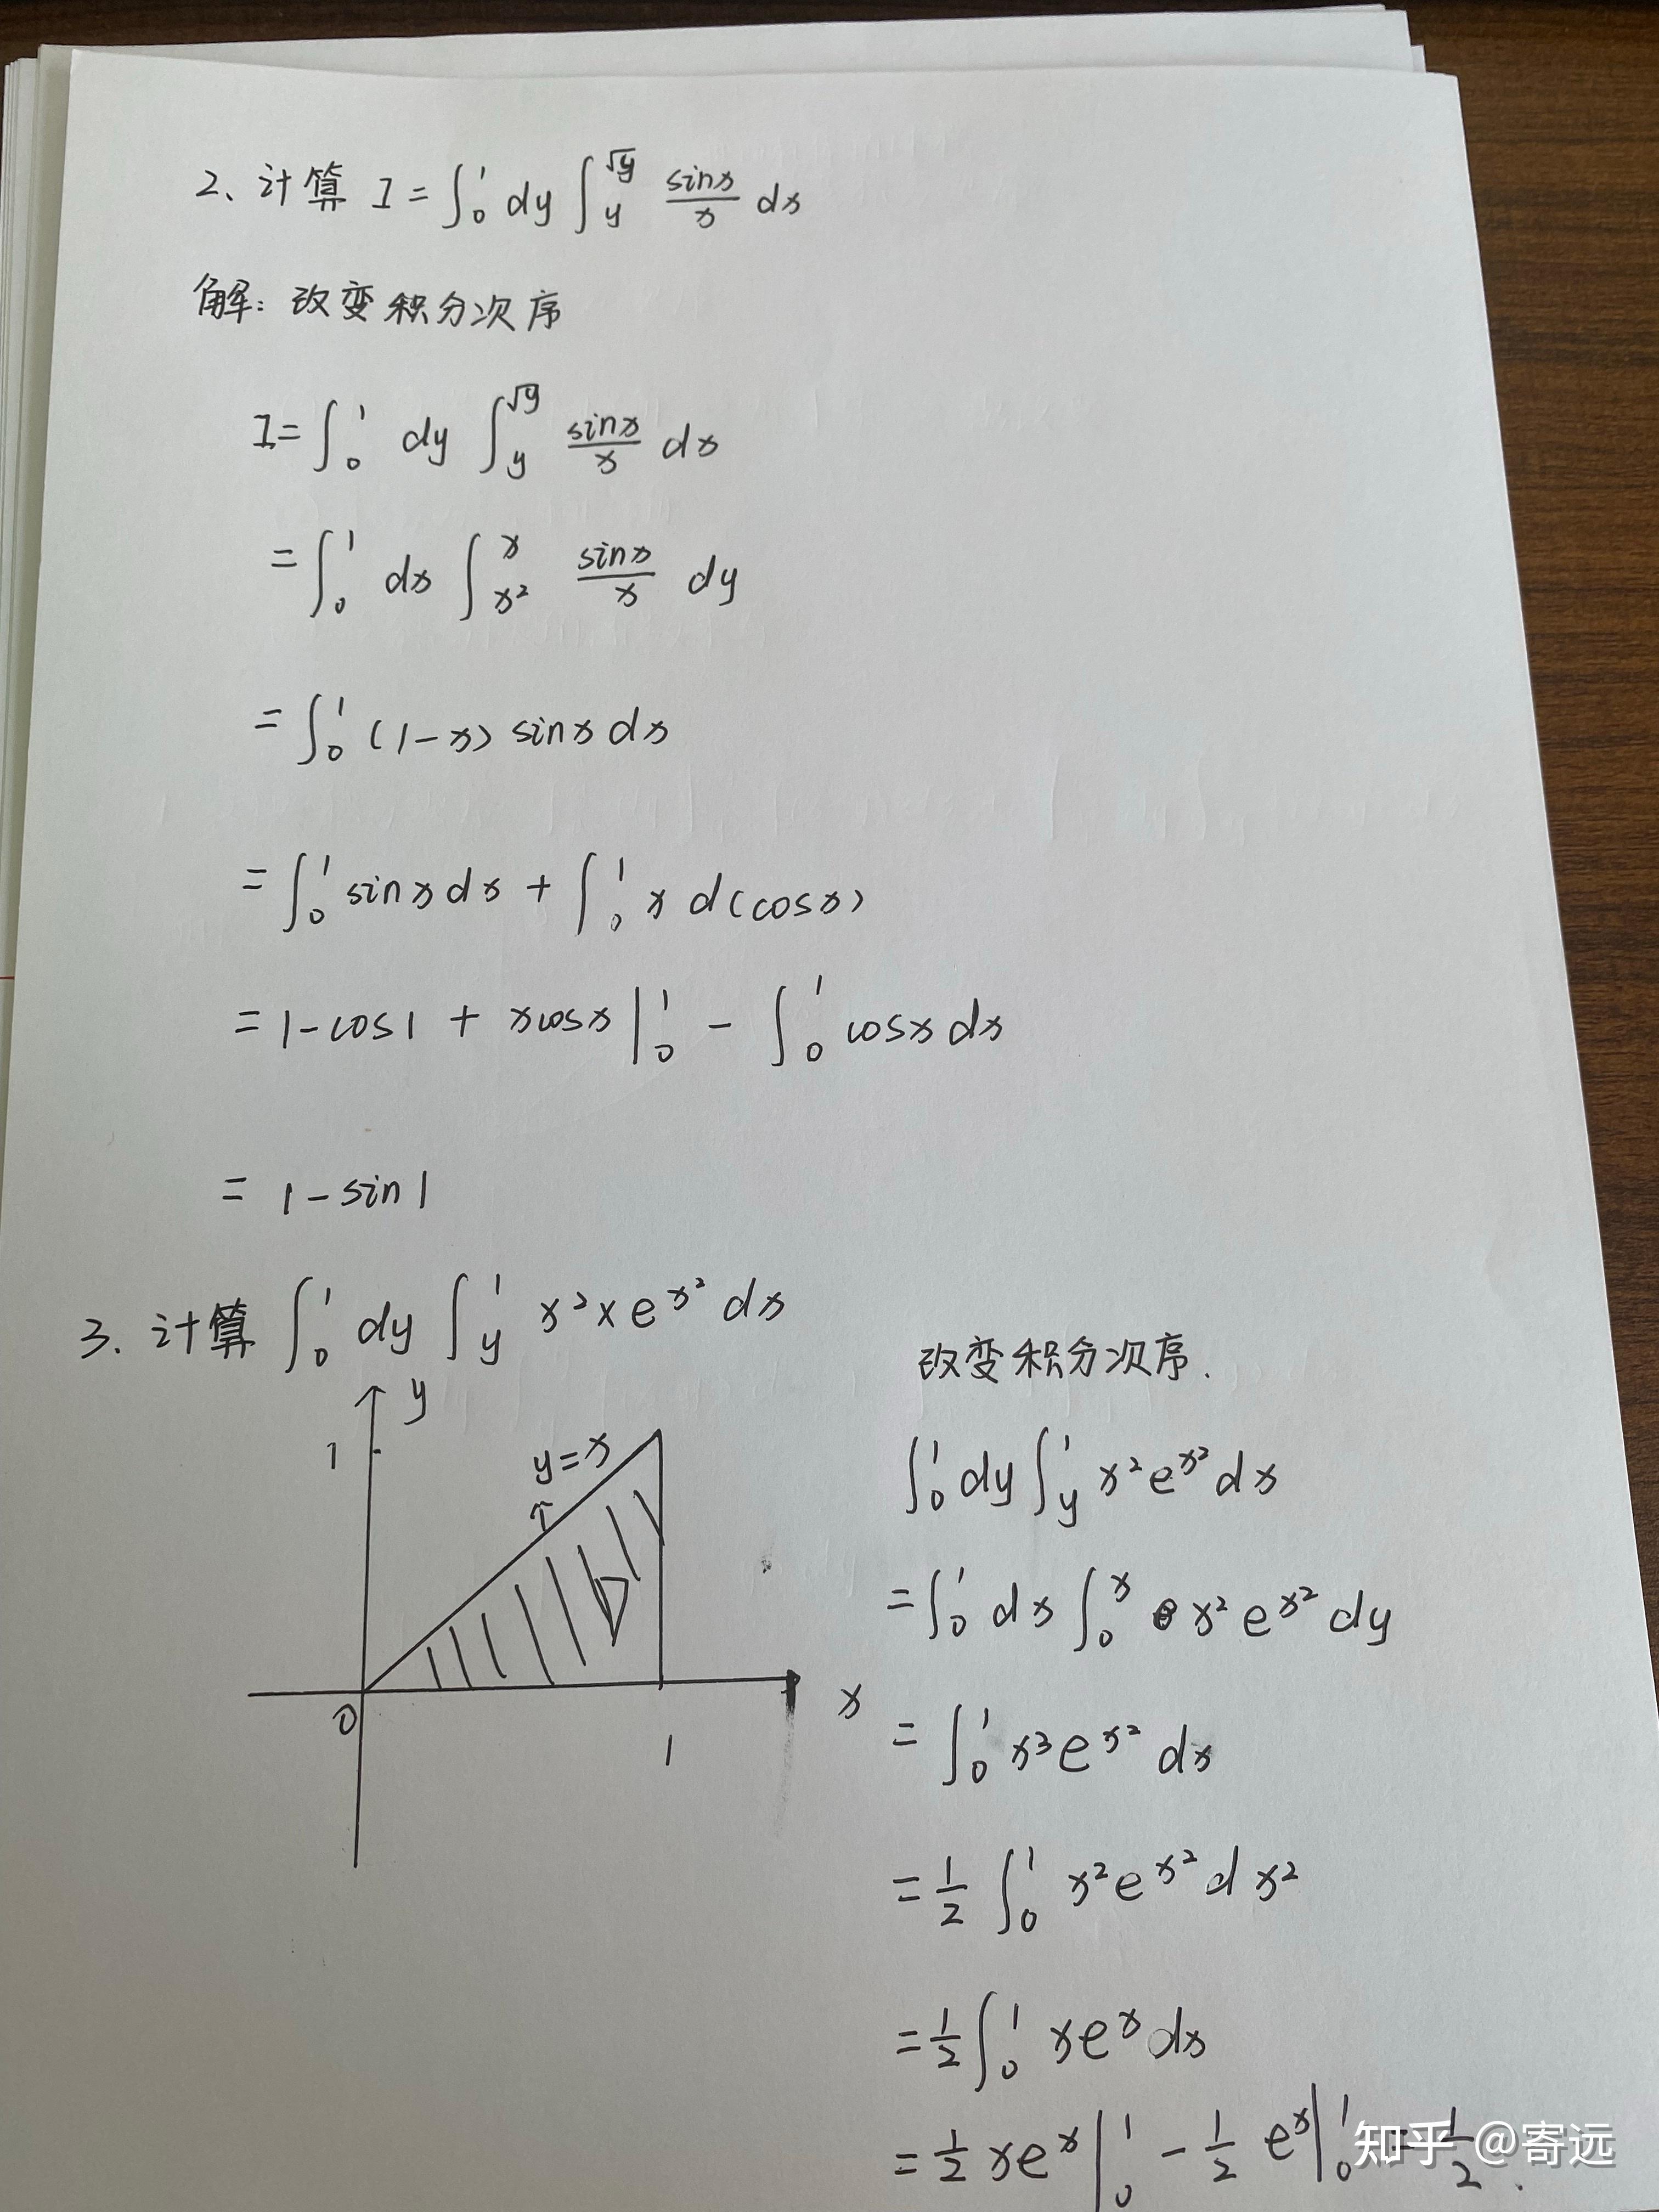 2、计算 I = ∫₀¹ dy ∫_y^√y sinx/x dx
解：改变积分次序
I = ∫₀¹ dy ∫_y^√y sinx/x dx
= ∫₀¹ dx ∫_x²^x sinx/x dy
= ∫₀¹ (1-x) sinx dx
= ∫₀¹ sinx dx + ∫₀¹ x d(cosx)
= 1-cos1 + xcosx |₀¹ - ∫₀¹ cosx dx
= 1-sin1
3. 计算 ∫₀¹ dy ∫_y¹ x²xe^x² dx
y
1
y=x
D
0
1
x
改变积分次序.
∫₀¹ dy ∫_y¹ x²e^x² dx
= ∫₀¹ dx ∫₀^x x²e^x² dy
= ∫₀¹ x³e^x² dx
= 1/2 ∫₀¹ x²e^x² dx²
= 1/2 ∫₀¹ xe^x dx
= 1/2 xe^x |₀¹ - 1/2 e^x |₀¹ = 1/2.
知乎 @寄远